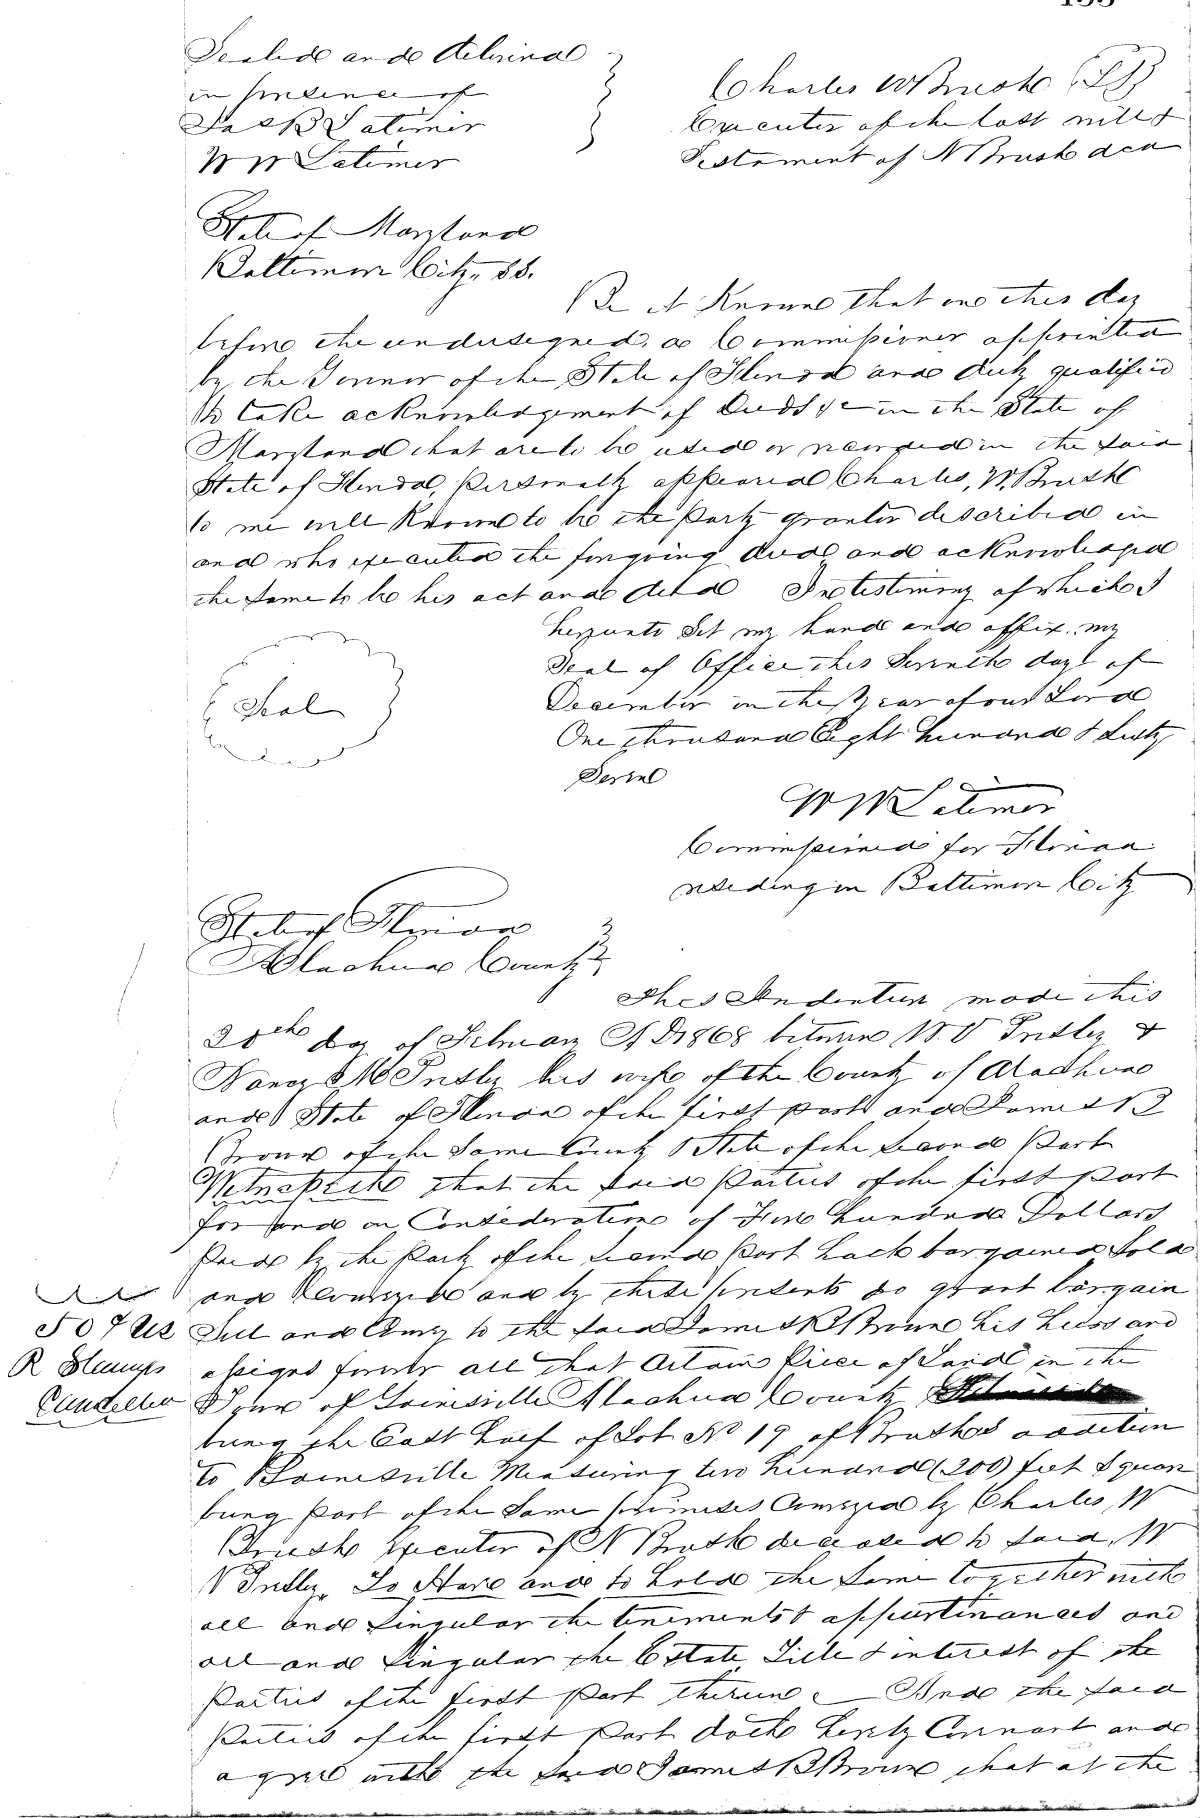 155
Sealed and delivered
in presence of
Jas R Latimer
W W Latimer
Charles W Brush (LS)
Executor of the last will &
Testament of N Brush dca
State of Maryland
Baltimore City, ss.
Be it Known that on this day
before the undersigned, a Commissioner appointed
by the Govenor of the State of Florida and duly qualified
to take acknowledgement of Deeds &c in the State of
Maryland that are to be used or recorded in the said
State of Florida, personally appeared Charles, W. Brush
to me well Known to be the party grantor described in
and who executed the forgoing deed and acknowledged
the same to be his act and deed In testimony of which I
hereunto Set my hand and affix my
Seal of Office this Seventh day of
December in the Year of our Lord
One thousand Eight hundred & Sixty
Seven
Seal
W W Latimer
Commissioner for Florida
residing in Baltimore City
State of Florida
Alachua County
This Indenture made this
20th day of Februay A D 1868 between W. V &
Nancy M his wife of the County of Alachua
and State of Florida of the first part and James B
Brown of the Same County & State of the Second Part
Witnesseth that the said Parties of the first part
for and in Consideration of Five hundred Dollars
Paid by the Party of the Second part hath bargained Sold
and Conveyed and by these presents do grant bargain
Sell and Convey to the said James B Brown his heirs and
assigns forever all that Certain Piece of Land in the
Town of Gainesville Alachua County
being the East half of Lot No 19 of Brush's addition
to Gainesville Measuring two hundred (200) feet Square
being part of the Same premises Conveyed by Charles W
Brush Executor of N Brush deceased to said W
V To Have and to hold the Same together with
all and Singular the tenements & appurtinances and
all and Singular the Estate Title & interest of the
Parties of the first part therein And the said
Parties of the first part doth hereby Covenant and
agree with the said James B Brown that at the
50 cts
R Stamps
Cancelled